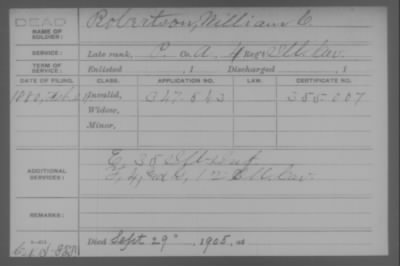 DEAD
NAME OF SOLDIER: Robertson, William C.
SERVICE: Late rank, P. Co. A, 4 Reg't Ill. Cav.
TERM OF SERVICE: Enlisted , 1 Discharged , 1
DATE OF FILING. CLASS. APPLICATION NO. LAW. CERTIFICATE NO.
1880, Invalid, 347.543 355.007
Widow,
Minor,
ADDITIONAL SERVICES: E, 38 Ill. Inf
F, 4, and G, 12 Ill. Cav.
REMARKS:
Died Sept 29" , 1905, at